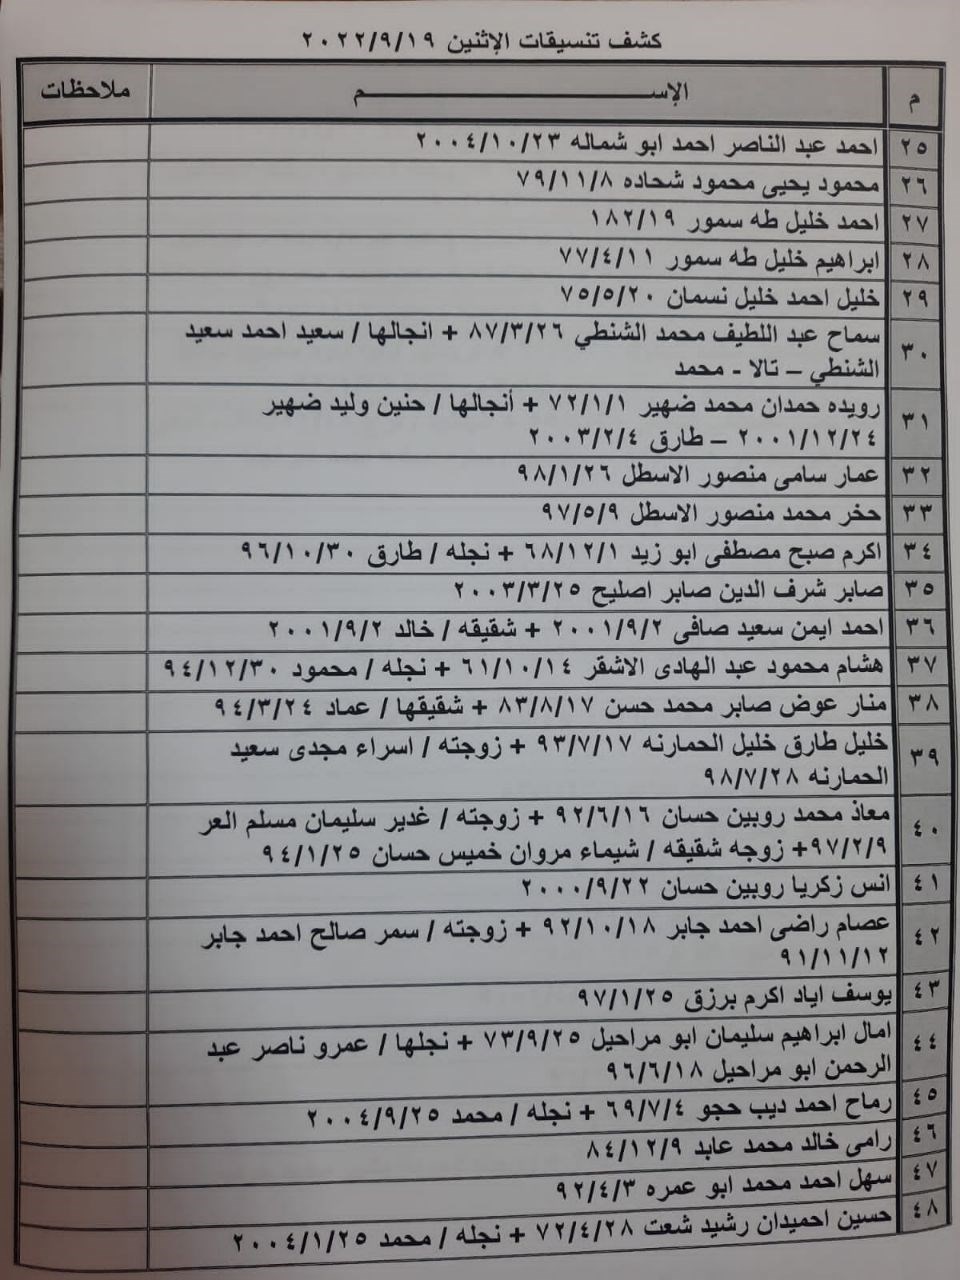 كشف تنسيقات الإثنين ٢٠٢٢/٩/١٩
م الإســـــــــــــــــــــــــم ملاحظات
٢٥ احمد عبد الناصر احمد ابو شماله ٢٠٠٤/١٠/٢٣
٢٦ محمود يحيى محمود شحاده ٧٩/١١/٨
٢٧ احمد خليل طه سمور ١٨٢/١٩
٢٨ ابراهيم خليل طه سمور ٧٧/٤/١١
٢٩ خليل احمد خليل نسمان ٧٥/٥/٢٠
٣٠ سماح عبد اللطيف محمد الشنطي ٨٧/٣/٢٦ + انجالها / سعيد احمد سعيد
الشنطي – تالا - محمد
٣١ رويده حمدان محمد ضهير ٧٢/١/١ + أنجالها / حنين وليد ضهير
٢٠٠١/١٢/٢٤ – طارق ٢٠٠٣/٢/٤
٣٢ عمار سامى منصور الاسطل ٩٨/١/٢٦
٣٣ حخر محمد منصور الاسطل ٩٧/٥/٩
٣٤ اكرم صبح مصطفى ابو زيد ٦٨/١٢/١ + نجله / طارق ٩٦/١٠/٣٠
٣٥ صابر شرف الدين صابر اصليح ٢٠٠٣/٣/٢٥
٣٦ احمد ايمن سعيد صافى ٢٠٠١/٩/٢ + شقيقه / خالد ٢٠٠١/٩/٢
٣٧ هشام محمود عبد الهادى الاشقر ٦١/١٠/١٤ + نجله / محمود ٩٤/١٢/٣٠
٣٨ منار عوض صابر محمد حسن ٨٣/٨/١٧ + شقيقها / عماد ٩٤/٣/٢٤
٣٩ خليل طارق خليل الحمارنه ٩٣/٧/١٧ + زوجته / اسراء مجدى سعيد
الحمارنه ٩٨/٧/٢٨
٤٠ معاذ محمد روبين حسان ٩٢/٦/١٦ + زوجته / غدير سليمان مسلم العر
٩٧/٢/٩+ زوجه شقيقه / شيماء مروان خميس حسان ٩٤/١/٢٥
٤١ انس زكريا روبين حسان ٢٠٠٠/٩/٢٢
٤٢ عصام راضى احمد جابر ٩٢/١٠/١٨ + زوجته / سمر صالح احمد جابر
٩١/١١/١٢
٤٣ يوسف اياد اكرم برزق ٩٧/١/٢٥
٤٤ امال ابراهيم سليمان ابو مراحيل ٧٣/٩/٢٥ + نجلها / عمرو ناصر عبد
الرحمن ابو مراحيل ٩٦/٦/١٨
٤٥ رماح احمد ديب حجو ٦٩/٧/٤ + نجله / محمد ٢٠٠٤/٩/٢٥
٤٦ رامى خالد محمد عابد ٨٤/١٢/٩
٤٧ سهل احمد محمد ابو عمره ٩٢/٤/٣
٤٨ حسين احميدان رشيد شعت ٧٢/٤/٢٨ + نجله / محمد ٢٠٠٤/١/٢٥